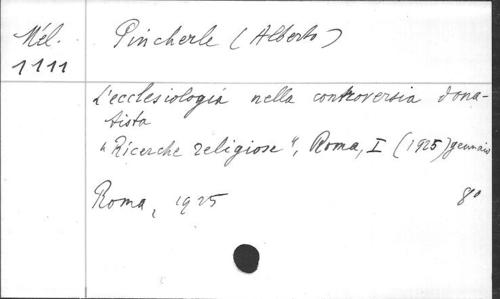 Mél.
1111
Pincherle (Alberto)
L'ecclesiologia nella controversia dona-
tista
"Ricerche religiose", Roma, I (1925) gennaio
Roma, 1925
8°